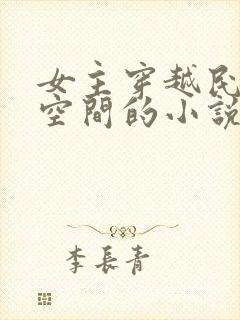 女主穿越民
空間的小說
李長青